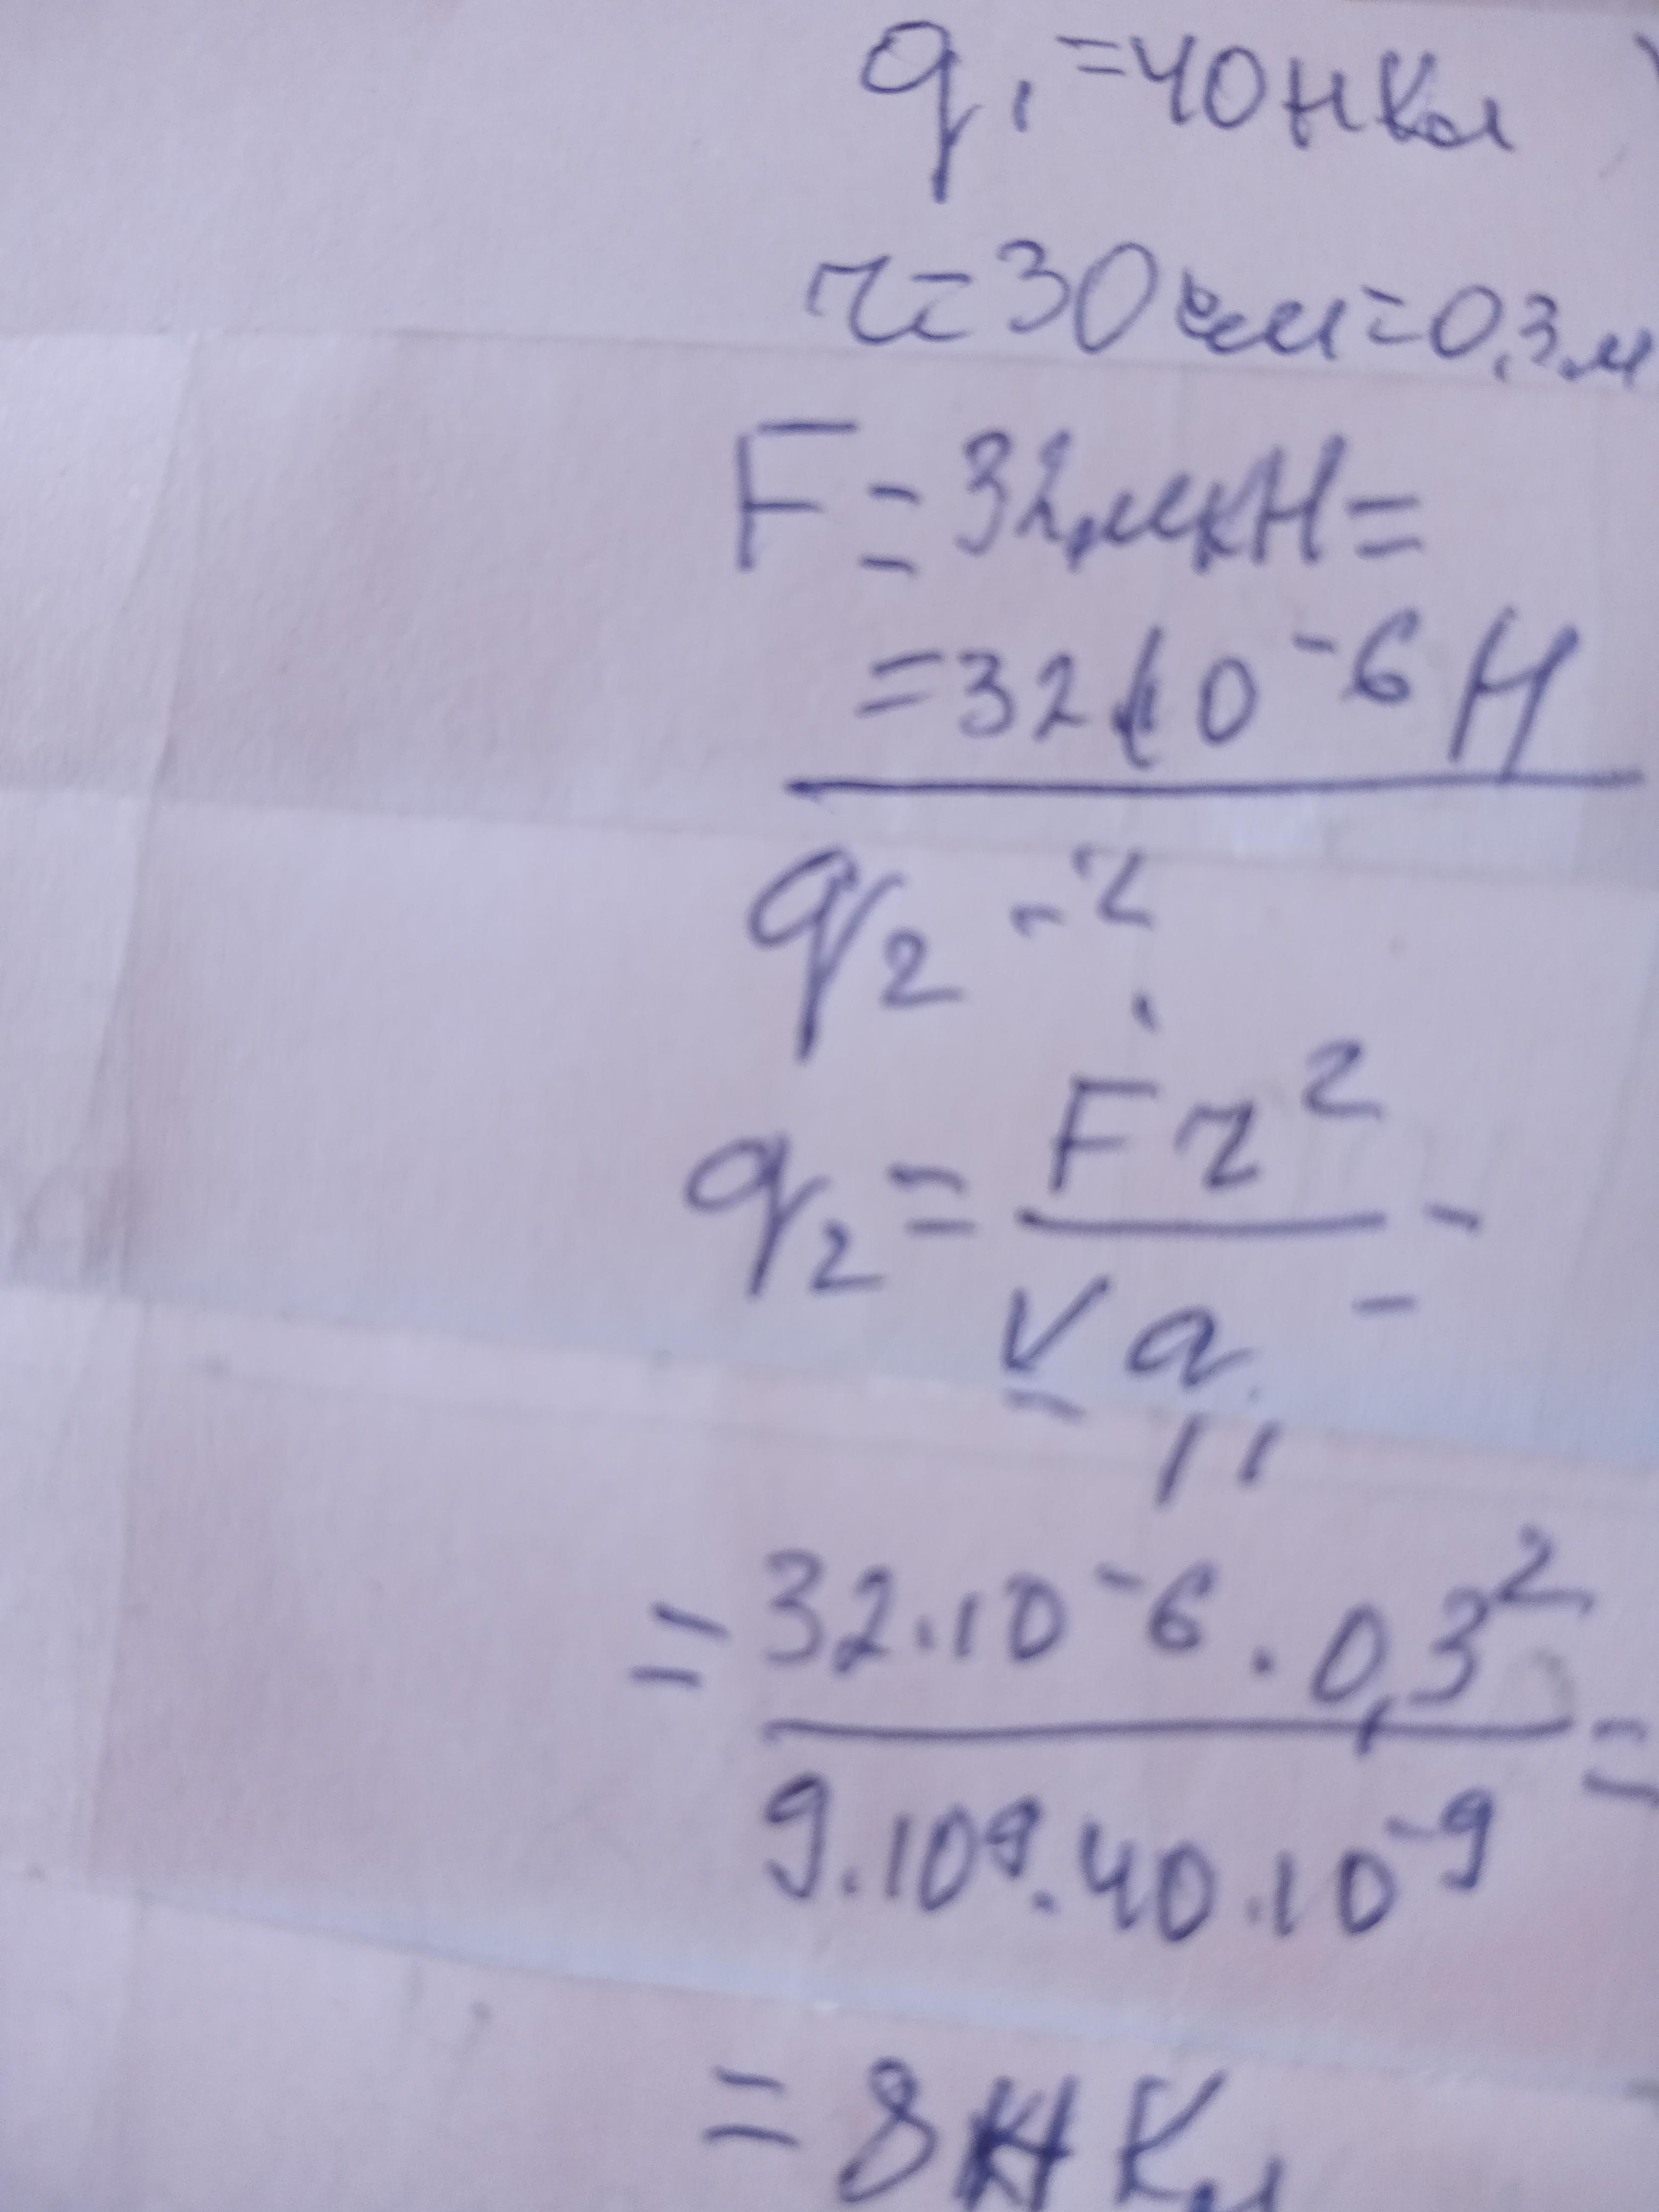 q₁ = 40 нКл
r = 30 см = 0,3 м
F = 32 мкН =
= 32 · 10⁻⁶ Н
q₂ - ?
q₂ = F r² / k q₁ =
= 32 · 10⁻⁶ · 0,3² / 9 · 10⁹ · 40 · 10⁻⁹ =
= 8 нКл